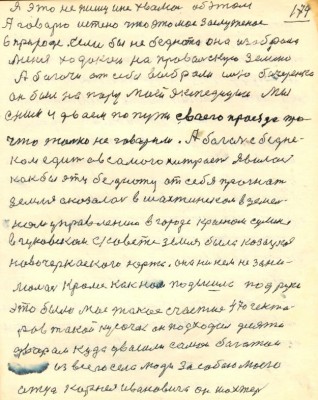 177
Я это не пишу и не хвалюс об этом
Я говорю истено что это мое заслуженое
в природе. Если бы не беднота она избрала
меня ходоком на провальскую землю
А богачи от себя выбрали
он был на пару моей экспедиции мы
с ним и двоем по пути своего проезда
что только не говорили. А богач с бедня-
ком едит
как бы эту бедноту от себя прогнат
земля оказалос в шахтинском в земе-
ном управлении в городе красном сулине
в гуковском с/совете земля была козачея
новочеркаского юрта. она ни кем не зани-
малас Кроме как под руке
это было мое такое счастие 470 гекта-
ров такой кусочек он подходил десяти
дворам куда двагали самое богатое
из всего села люди За собою моего
отца Карнея ивановича он шахтер